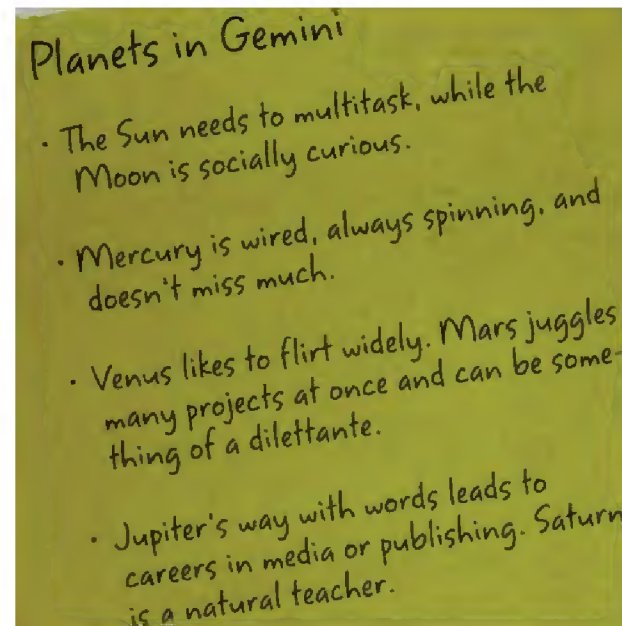 Planets in Gemini
· The Sun needs to multitask, while the
Moon is socially curious.
· Mercury is wired, always spinning, and
doesn't miss much.
· Venus likes to flirt widely. Mars juggles
many projects at once and can be some-
thing of a dilettante.
· Jupiter's way with words leads to
careers in media or publishing. Saturn
is a natural teacher.